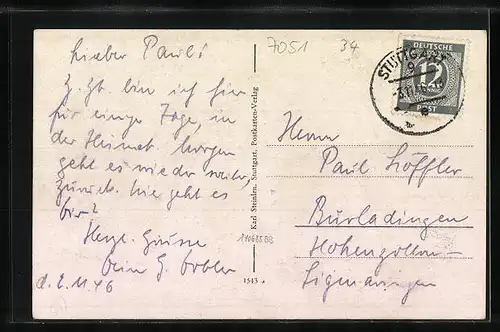 lieber Paul!
Z. Zt. bin ich hier
für einige Tage, in
der Heimat. Morgen
geht es wieder
zurück. Wie geht es
Dir?
Herzl. Grüsse
Dein G.
d. 2.11.46
7051
34
DEUTSCHE
12
PFENNIG
STUTTGART
Herrn
Paul Löffler
Burladingen
Hohenzollern-
Sigmaringen
Karl Steinlen, Stuttgart, Postkarten-Verlag
1543